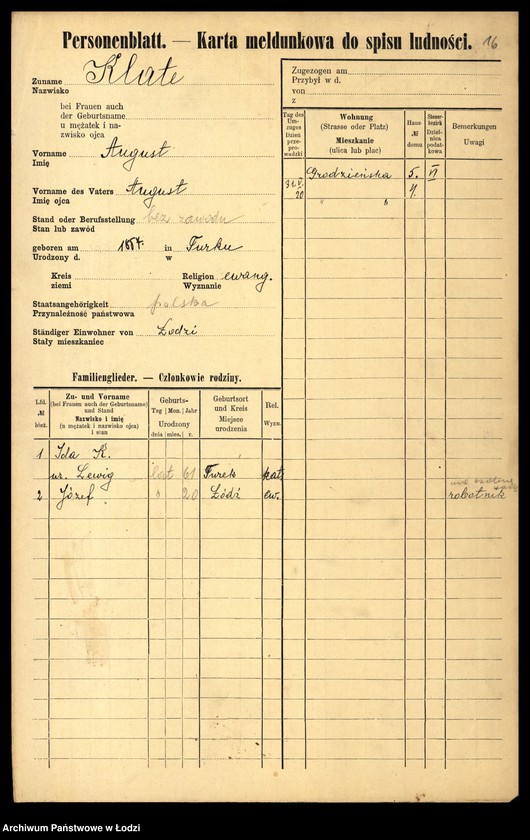 Personenblatt. — Karta meldunkowa do spisu ludności.
16
Zuname Klate
Nazwisko
bei Frauen auch
der Geburtsname
u mężatek i na-
zwisko ojca
Vorname August
Imię
Vorname des Vaters August
Imię ojca
Stand oder Berufsstellung bez zawodu
Stan lub zawód
geboren am 1854. in Turku
Urodzony d. w
Kreis Religion ewang.
ziemi Wyznanie
Staatsangehörigkeit polska
Przynależność państwowa
Ständiger Einwohner von Łodzi
Stały mieszkaniec
Zugezogen am
Przybył w d.
von
z
Tag des Um-zuges Dzień prze-pro-wadzki
Wohnung
(Strasse oder Platz)
Mieszkanie
(ulica lub plac)
Haus-
№
domu
Steuer-bezirk Dziel-nica podat-kowa
Bemerkungen
Uwagi
Grodzieńska 5. VI
31.V. 20 " " 4.
Familienglieder. — Członkowie rodziny.
Lfd.
№
bież.
Zu- und Vorname
(bei Frauen auch der Geburtsname)
und Stand
Nazwisko i imię
(u mężatek i nazwisko ojca)
i stan
Geburts-
Tag Mon. Jahr
Urodzony
dnia mies. r.
Geburtsort
und Kreis
Miejsce
urodzenia
Rel.
Wyzn.
1 Ida K.
ur. Lewig lat 61 Turek kat.
2 Józef " 20 Łódź ew. robotnik
Archiwum Państwowe w Łodzi